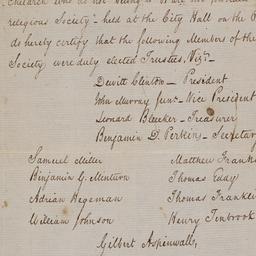 religious Society - held at the City Hall on the
do hereby certify that the following Members of the
Society were duly elected Trustees, Vizt.
Dewitt Clinton - President
John Murray Junr - Vice President
Leonard Bleecker - Treasurer
Benjamin D. Perkins - Secretary
Samuel Miller Matthew Frankl
Benjamin G. Minturn Thomas Eddy
Adrian Hegeman Thomas Frankli
William Johnson Henry Tenbrook
Gilbert Aspinwall,